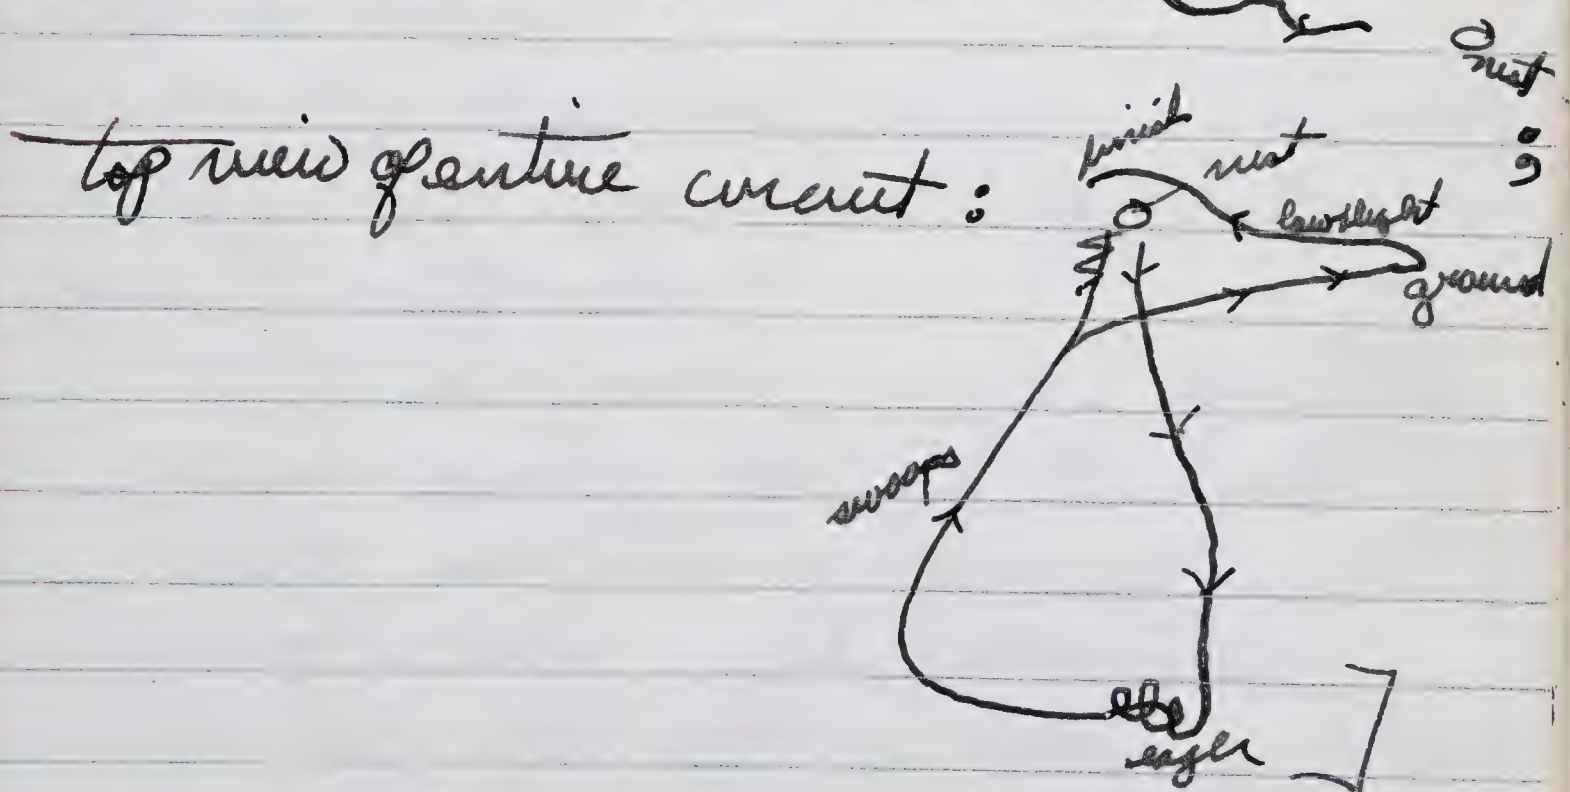 nest
;
top view of entire circuit:
finish
nest
low flight
ground
swoops
eager
]